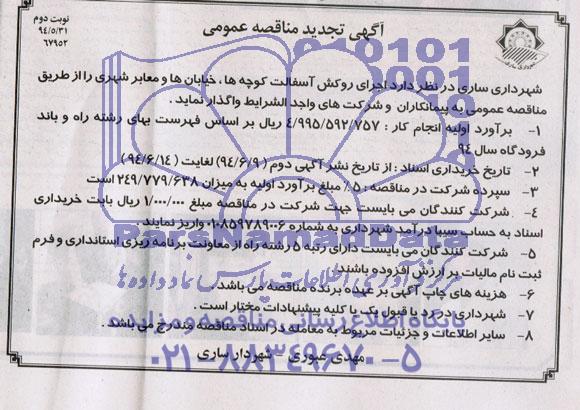 آگهی تجدید مناقصه عمومی
نوبت دوم
۹۴/۵/۳۱
۶۷۹۵۲
شهرداری ساری
شهرداری ساری در نظر دارد اجرای روکش آسفالت کوچه ها ، خیابان ها و معابر شهری را از طریق
مناقصه عمومی به پیمانکاران و شرکت های واجد الشرایط واگذار نماید .
۱- برآورد اولیه انجام کار : ۴/۹۹۵/۵۹۲/۷۵۷ ریال بر اساس فهرست بهای رشته راه و باند
فرودگاه سال ۹۴
۲- تاریخ خریداری اسناد : از تاریخ نشر آگهی دوم (۹۴/۶/۹) لغایت (۹۴/۶/۱۴)
۳- سپرده شرکت در مناقصه : ۵٪ مبلغ برآورد اولیه به میزان ۲۴۹/۷۷۹/۶۳۸ است
۴- شرکت کنندگان می بایست جهت شرکت در مناقصه مبلغ ۱/۰۰۰/۰۰۰ ریال بابت خریداری
اسناد به حساب سیبا درآمد شهرداری به شماره ۰۱۰۸۵۹۷۸۹۰۰۶ واریز نمایند
۵- شرکت کنندگان می بایست دارای رتبه ۵ رشته راه از معاونت برنامه ریزی استانداری و فرم
ثبت نام مالیات بر ارزش افزوده باشند
۶- هزینه های چاپ آگهی بر عهده برنده مناقصه می باشد .
۷- شهرداری در رد یا قبول یک یا کلیه پیشنهادات مختار است .
۸- سایر اطلاعات و جزئیات مربوط به معامله در اسناد مناقصه مندرج می باشد .
مهدی عبوری - شهردار ساری
ParsNamadData
مرکز فرآوری اطلاعات پارس نماد داده ها
پایگاه اطلاع رسانی مناقصه و مزایده
۰۲۱-۸۸۳۴۹۶۷۰-۵